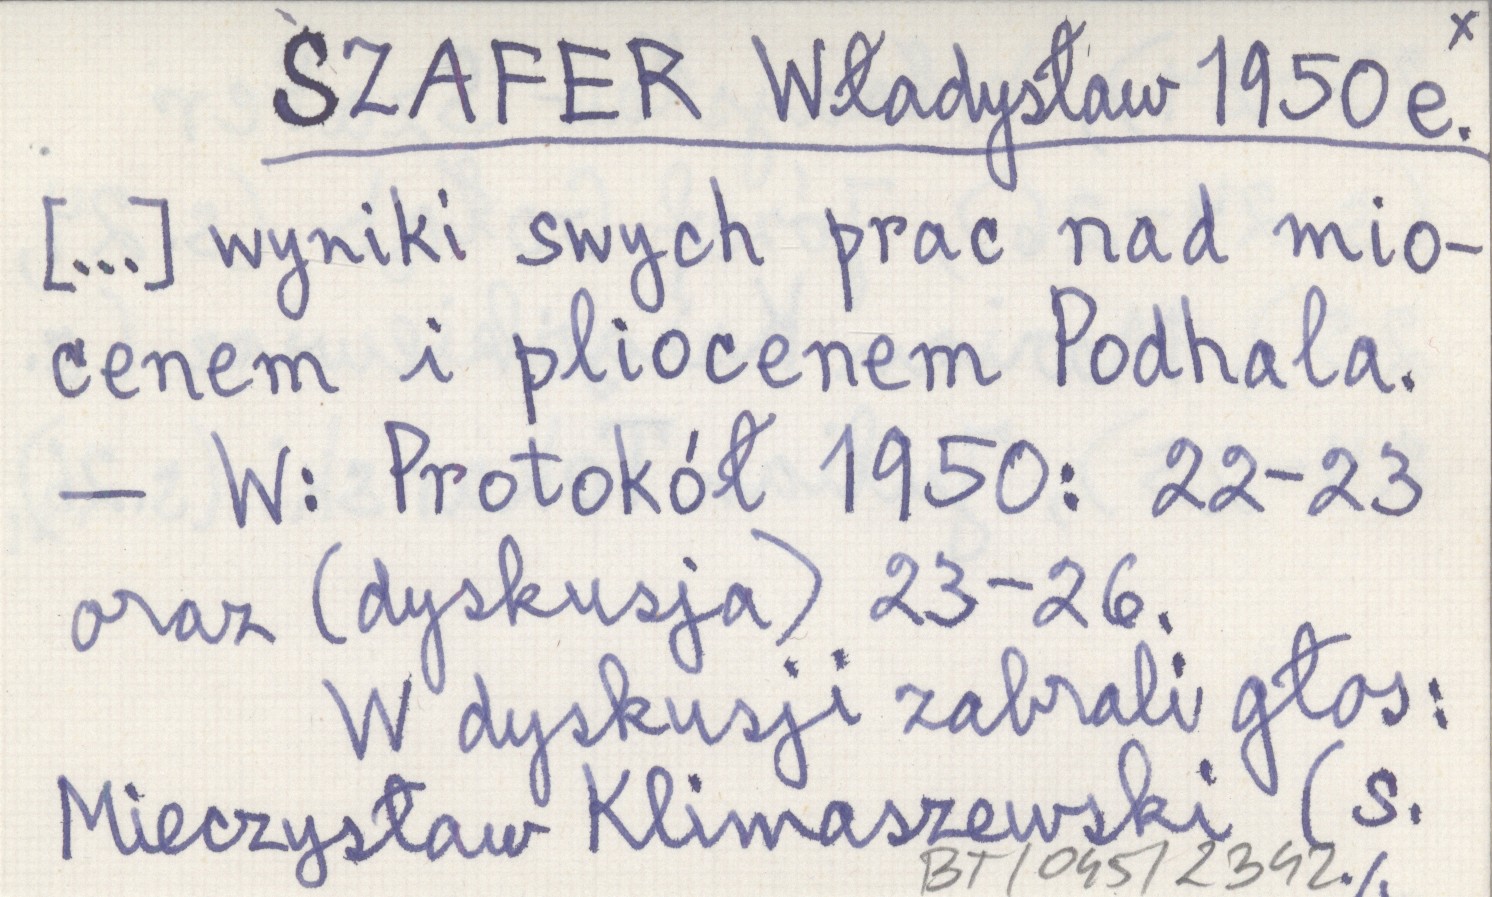 SZAFER Władysław 1950 e. x
[...] wyniki swych prac nad mio-
cenem i pliocenem Podhala.
— W: Protokół 1950: 22-23
oraz (dyskusja) 23-26.
W dyskusji zabrali głos:
Mieczysław Klimaszewski (s.
BT/045/2392 ./.